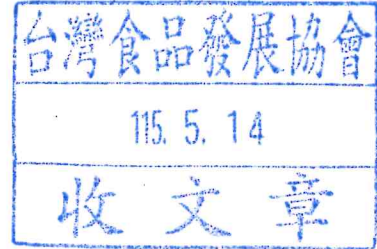 台灣食品發展協會
115. 5. 14
收文章